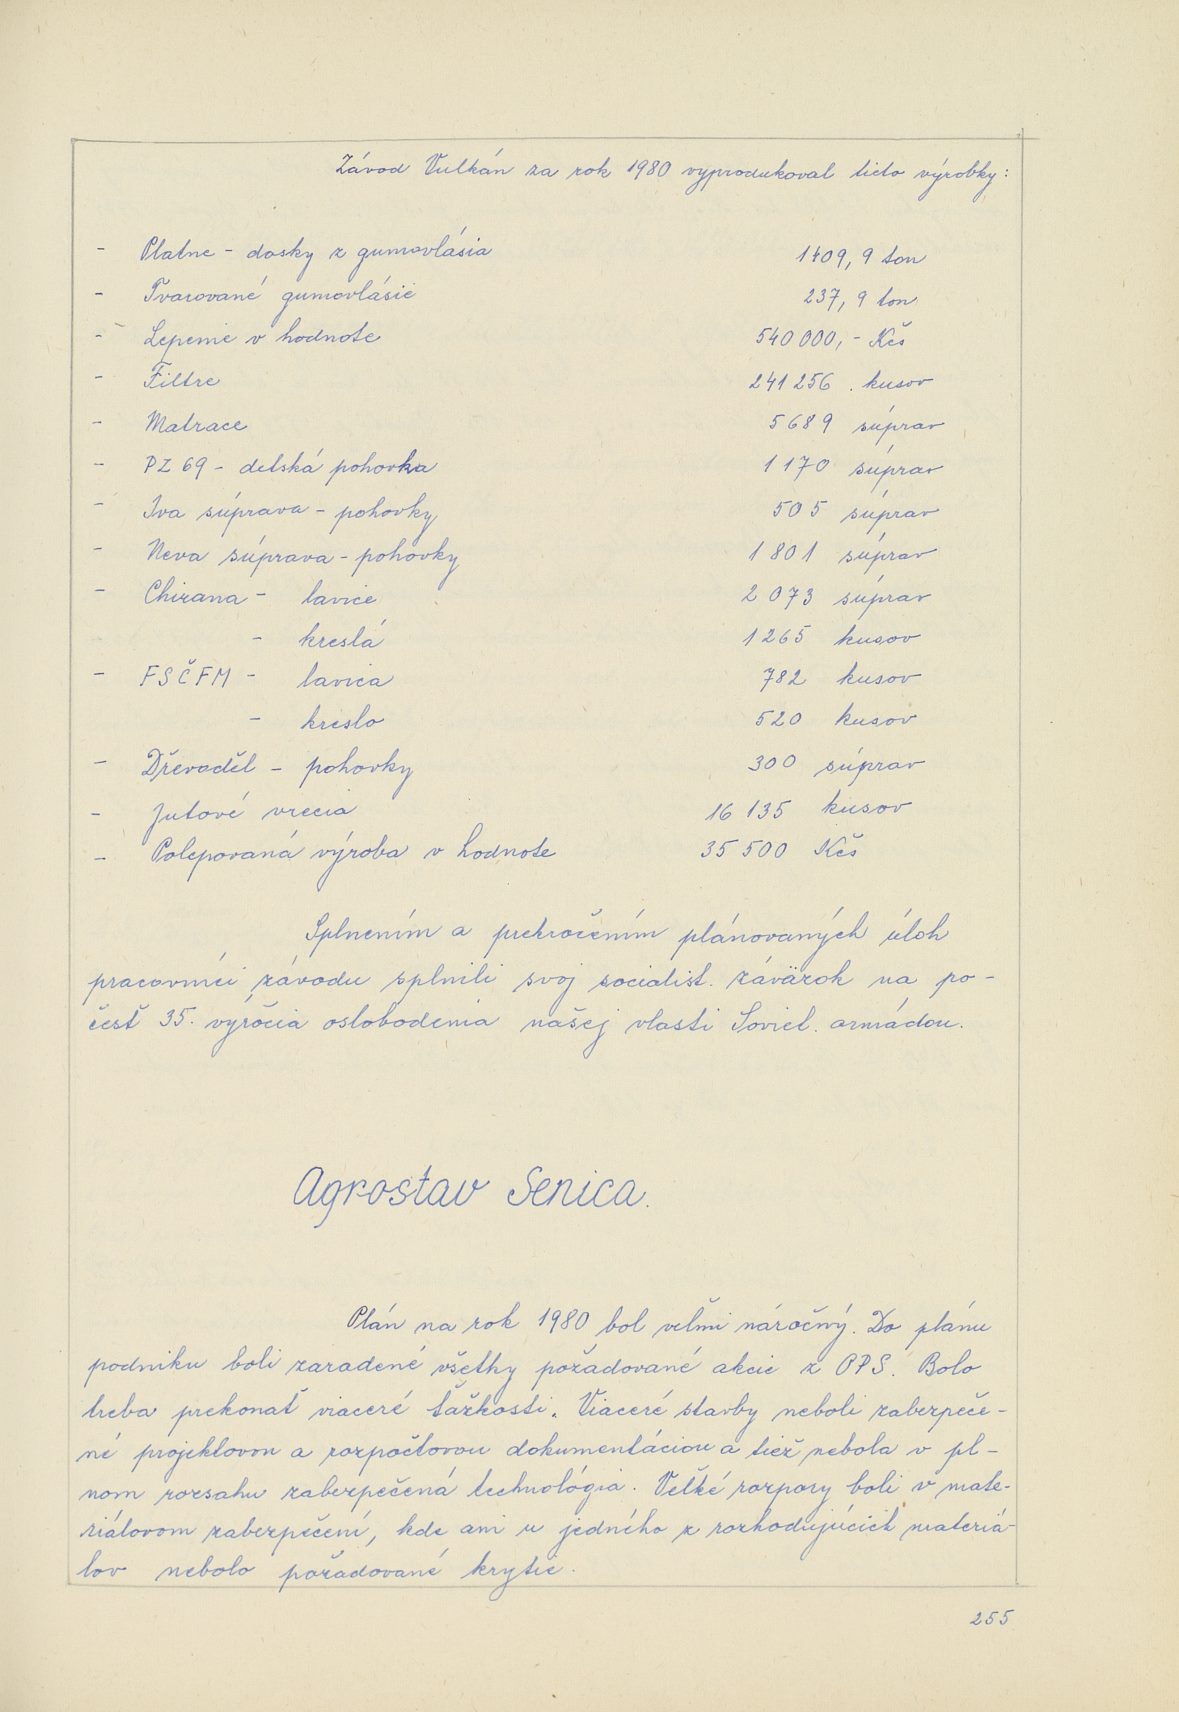 Závod Vulkán za rok 1980 vyprodukoval tieto výrobky:
- Platne - dosky z gumovlásia 1409,9 ton
- Tvarované gumovlásie 237,9 ton
- Lepenie v hodnote 540 000,- Kčs
- Filtre 241 256 kusov
- Matrace 5689 súprav
- PZ 69 - detská pohovka 1170 súprav
- Iva súprava - pohovky 505 súprav
- Neva súprava - pohovky 1801 súprav
- Chirana - lavice 2 073 súprav
- kreslá 1265 kusov
- FSČFM - lavica 782 kusov
- kreslo 520 kusov
- Dřevoděl - pohovky 300 súprav
- Jutové vrecia 16 135 kusov
- Polepovaná výroba v hodnote 35 500 Kčs
Splnením a prekročením plánovaných úloh
pracovníci závodu splnili svoj socialist. záväzok na po-
česť 35. výročia oslobodenia našej vlasti Soviet. armádou.
Agrostav Senica.
Plán na rok 1980 bol veľmi náročný. Do plánu
podniku boli zaradené všetky požadované akcie z OPS. Bolo
treba prekonať viaceré ťažkosti. Viaceré stavby neboli zabezpeče-
né projektovou a rozpočtovou dokumentáciou a tiež nebola v pl-
nom rozsahu zabezpečená technológia. Veľké rozpory boli v mate-
riálovom zabezpečení, kde ani u jedného z rozhodujúcich materiá-
lov nebolo požadované krytie.
255